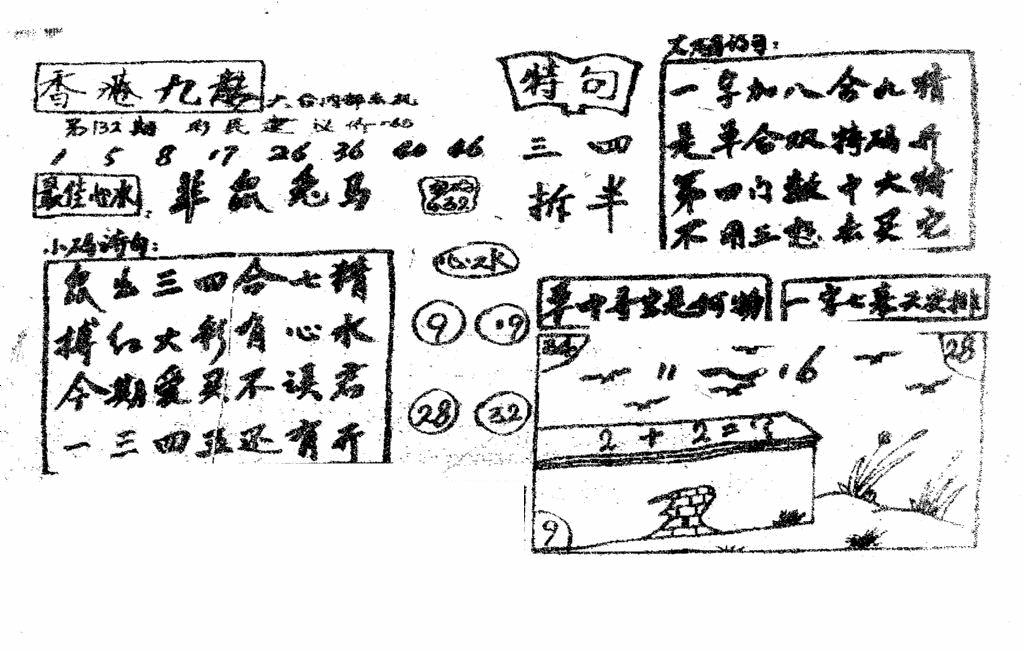 香港九龍
六合内部玄机
第132期 彩民建议价
1 5 8 17 26 36 40 46
最佳心水: 羊鼠兔马
632
特句
三四
拆半
一字加八合九精
是单合双特码开
第四门数中大特
不用三想去买它
小码诗句:
鼠出三四合七精
搏红大彩有心水
今期爱买不误君
一三四五还有开
心水
9 19
28 32
草中寻宝是何物
一字七幕天安排
34 28
11 16
2+2=?
9